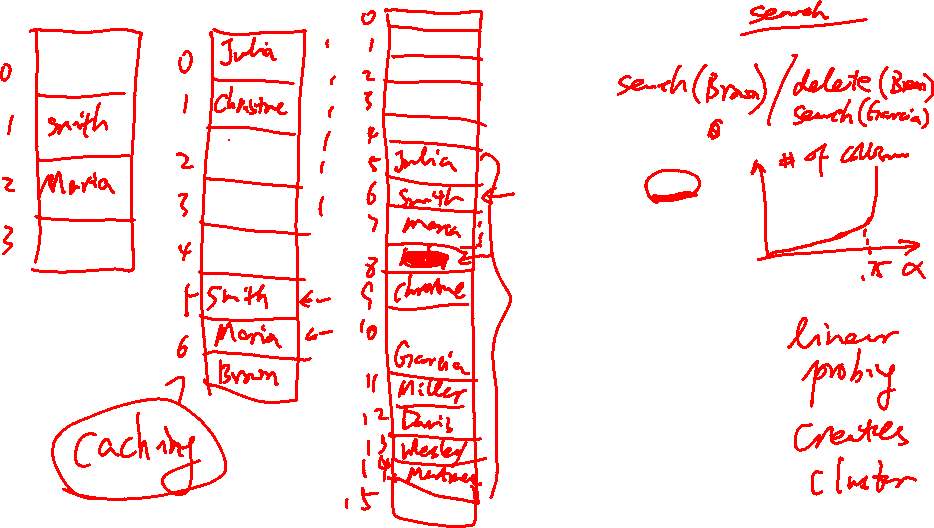 0
1 Smith
2 Maria
3
0 Julia
1 Christine
2
3
4
5 Smith
6 Maria
Brown
Caching
0
1
2
3
4
5 Julia
6 Smith
7 Maria
8
9 Christine
10
Garcia
11 Miller
12 Davis
13 Wesley
14
15
search
search(Brown)/delete(Brown)
search(Garcia)
# of
.75 α
linear
probing
creates
cluster